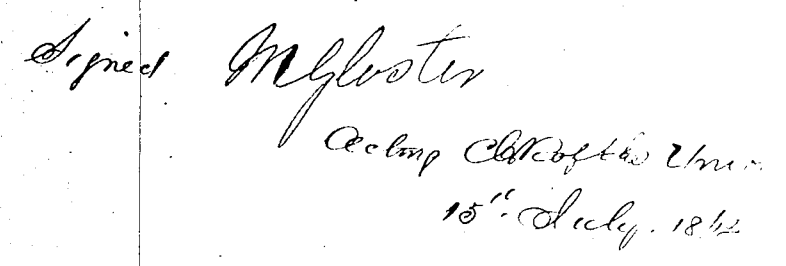 Signed M Gloster
Acting Clerk of the Union
15th July. 18